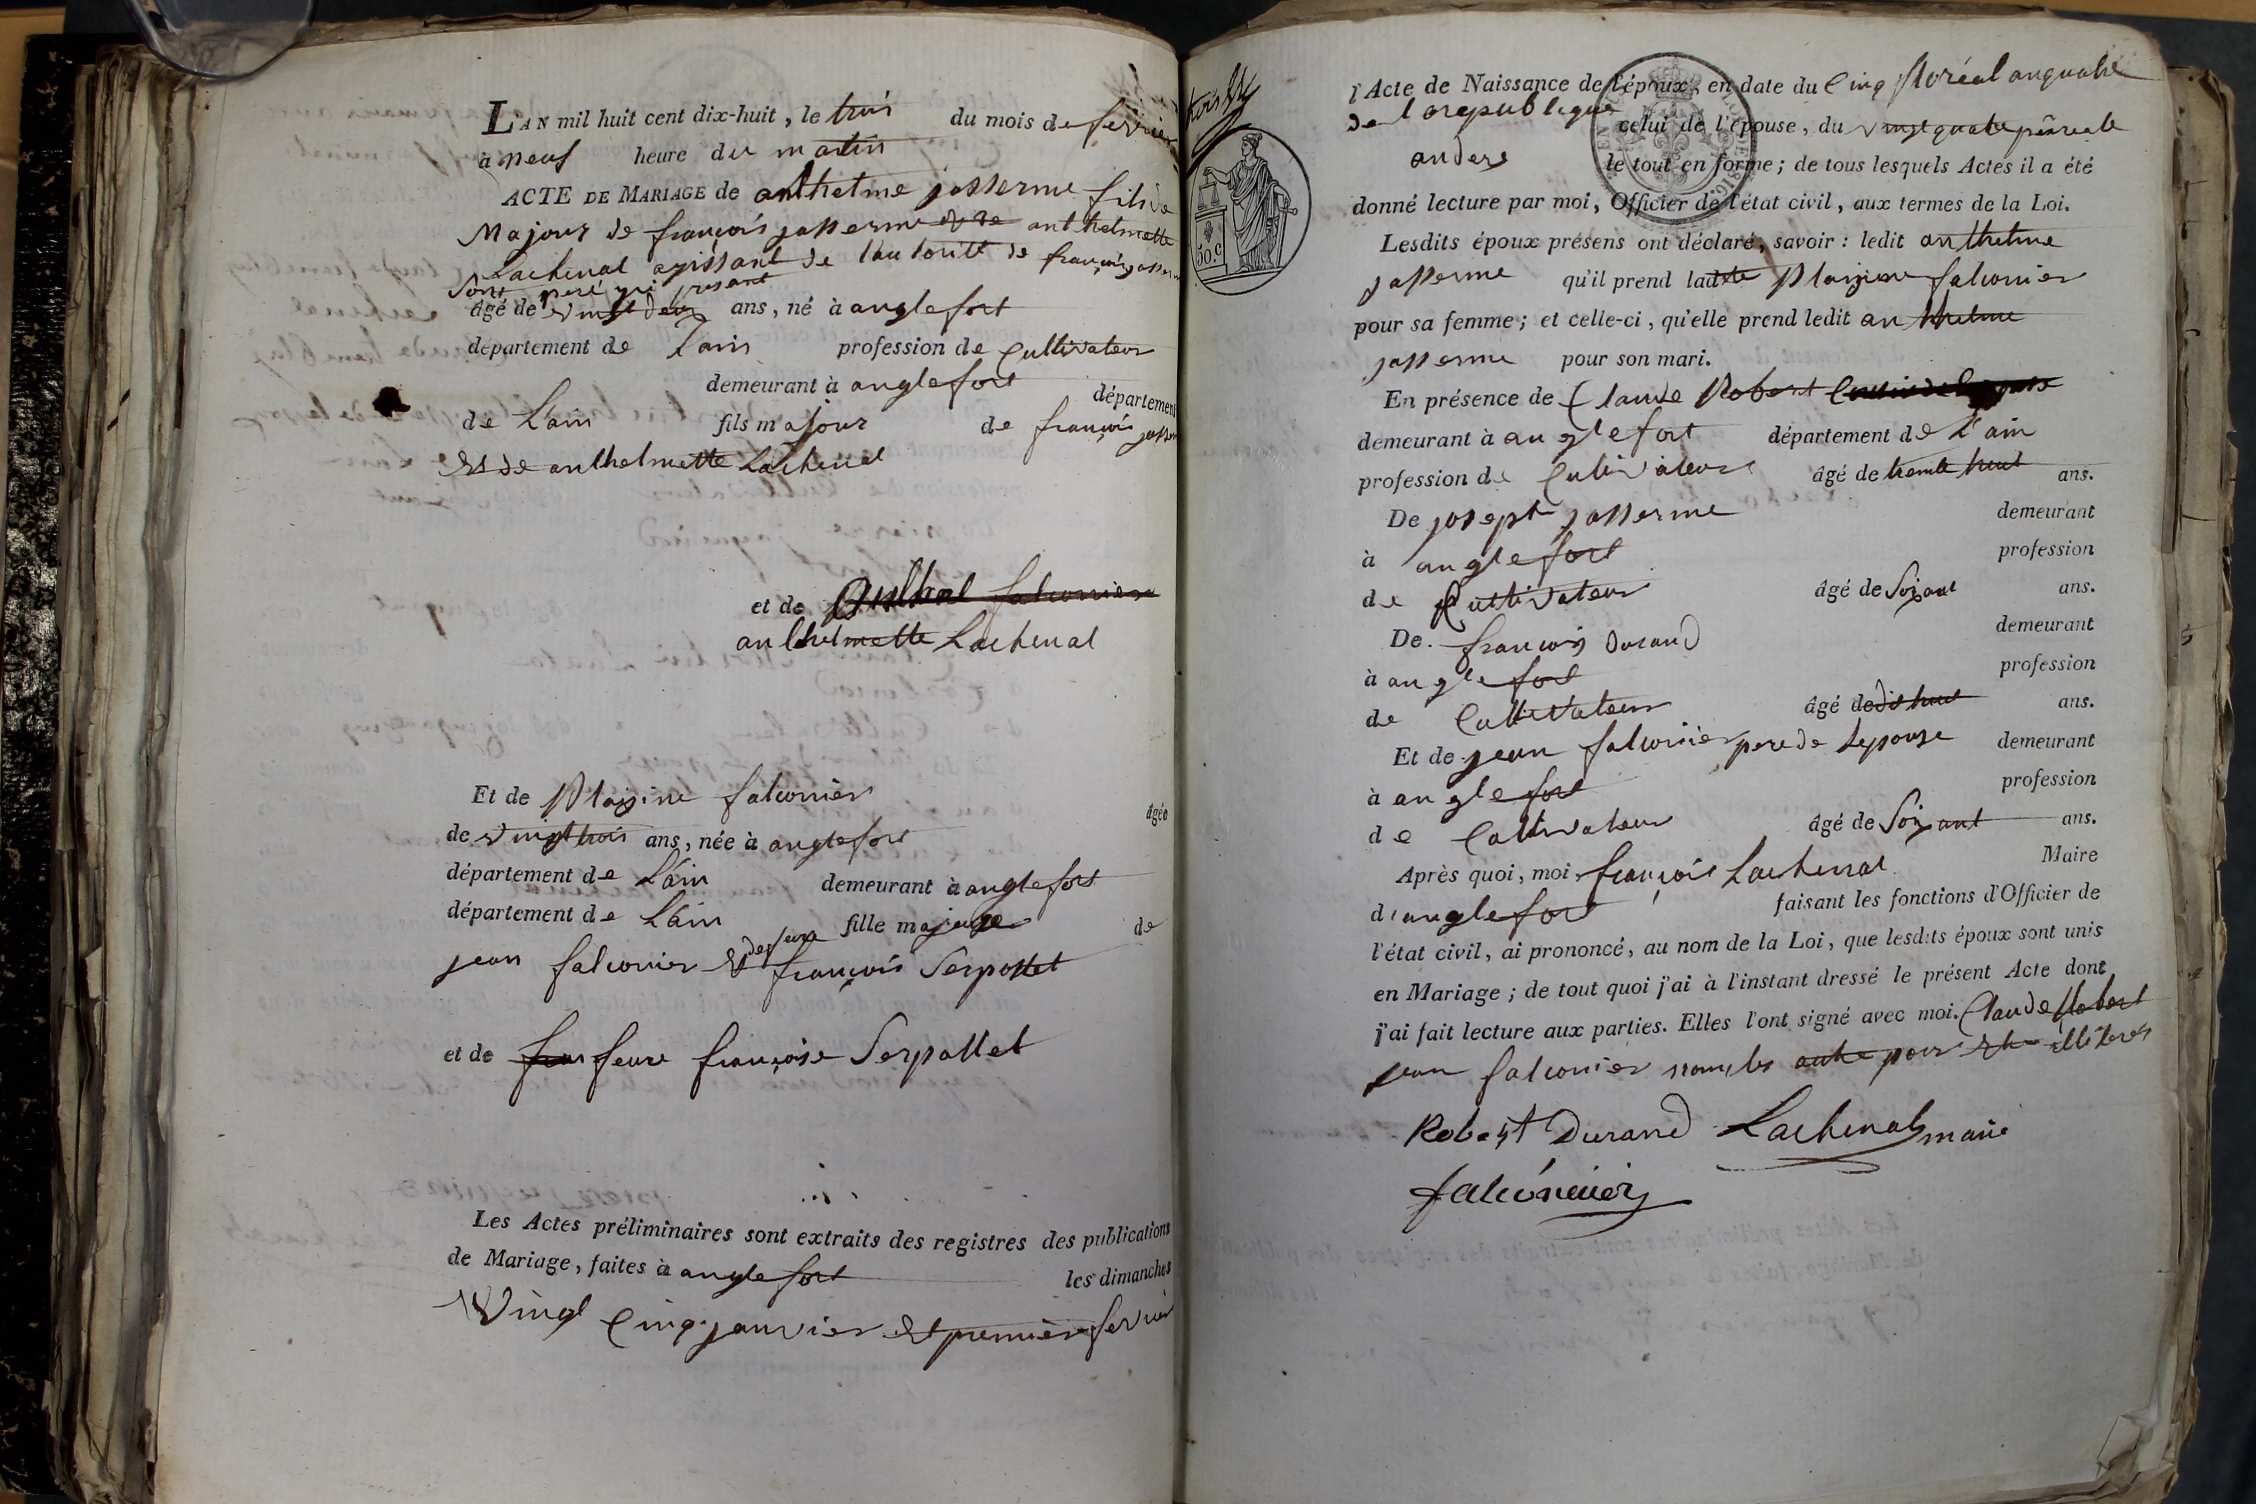 LAN mil huit cent dix-huit, le trois du mois de fevrier
à neuf heure du matin
ACTE DE MARIAGE de anthelme jasserme fils de
Majour de françois jasserme et de anthelmette
Lachenal agissant de lautorité de françois jasserme
Sont peré yci present
âgé de vingt deux ans, né à anglefort
département de Lain profession de Cultivateur
demeurant à anglefort département
de Lain fils majour de françois jasserme
Et de anthelmette Lachenal
et de
anthelmette Lachenal
Et de Plaisine falconnier âgée
de vingt trois ans, née à anglefort
département de Lain demeurant à anglefort
département de Lain fille majeure de
jean falconier & de feue françois Serpollet
et de feue françoise Serpollet
Les Actes préliminaires sont extraits des registres des publications
de Mariage, faites à anglefort les dimanches
Vingt Cinq janvier et premier fevrier
50.C
l'Acte de Naissance de l'époux, en date du Cinq floréal an quatre
de la republique celui de l'épouse, du vingt quatre
an dere le tout en forme; de tous lesquels Actes il a été
donné lecture par moi, Officier de l'état civil, aux termes de la Loi.
Lesdits époux présens ont déclaré, savoir: ledit anthelme
jasserme qu'il prend ladite Plaisine falconier
pour sa femme; et celle-ci, qu'elle prend ledit anthelme
jasserme pour son mari.
En présence de Claude Robert
demeurant à anglefort département de L'ain
profession de Cultivateur âgé de trente huit ans.
De joseph jasserme demeurant
à anglefort profession
de Cultivateur âgé de Soixant ans.
De françois Durand demeurant
à anglefort profession
de Cultivateur âgé de dis huit ans.
Et de jean falconier pere de Lepouse demeurant
à anglefort profession
de Cultivateur âgé de Soixant ans.
Après quoi, moi françois Lachenal Maire
d'anglefort faisant les fonctions d'Officier de
l'état civil, ai prononcé, au nom de la Loi, que lesdits époux sont unis
en Mariage; de tout quoi j'ai à l'instant dressé le présent Acte dont
j'ai fait lecture aux parties. Elles l'ont signé avec moi. Claude Robert
jean falconier non les autre pour etre illiterés
Robert Durand Lachenal maire
falconnier